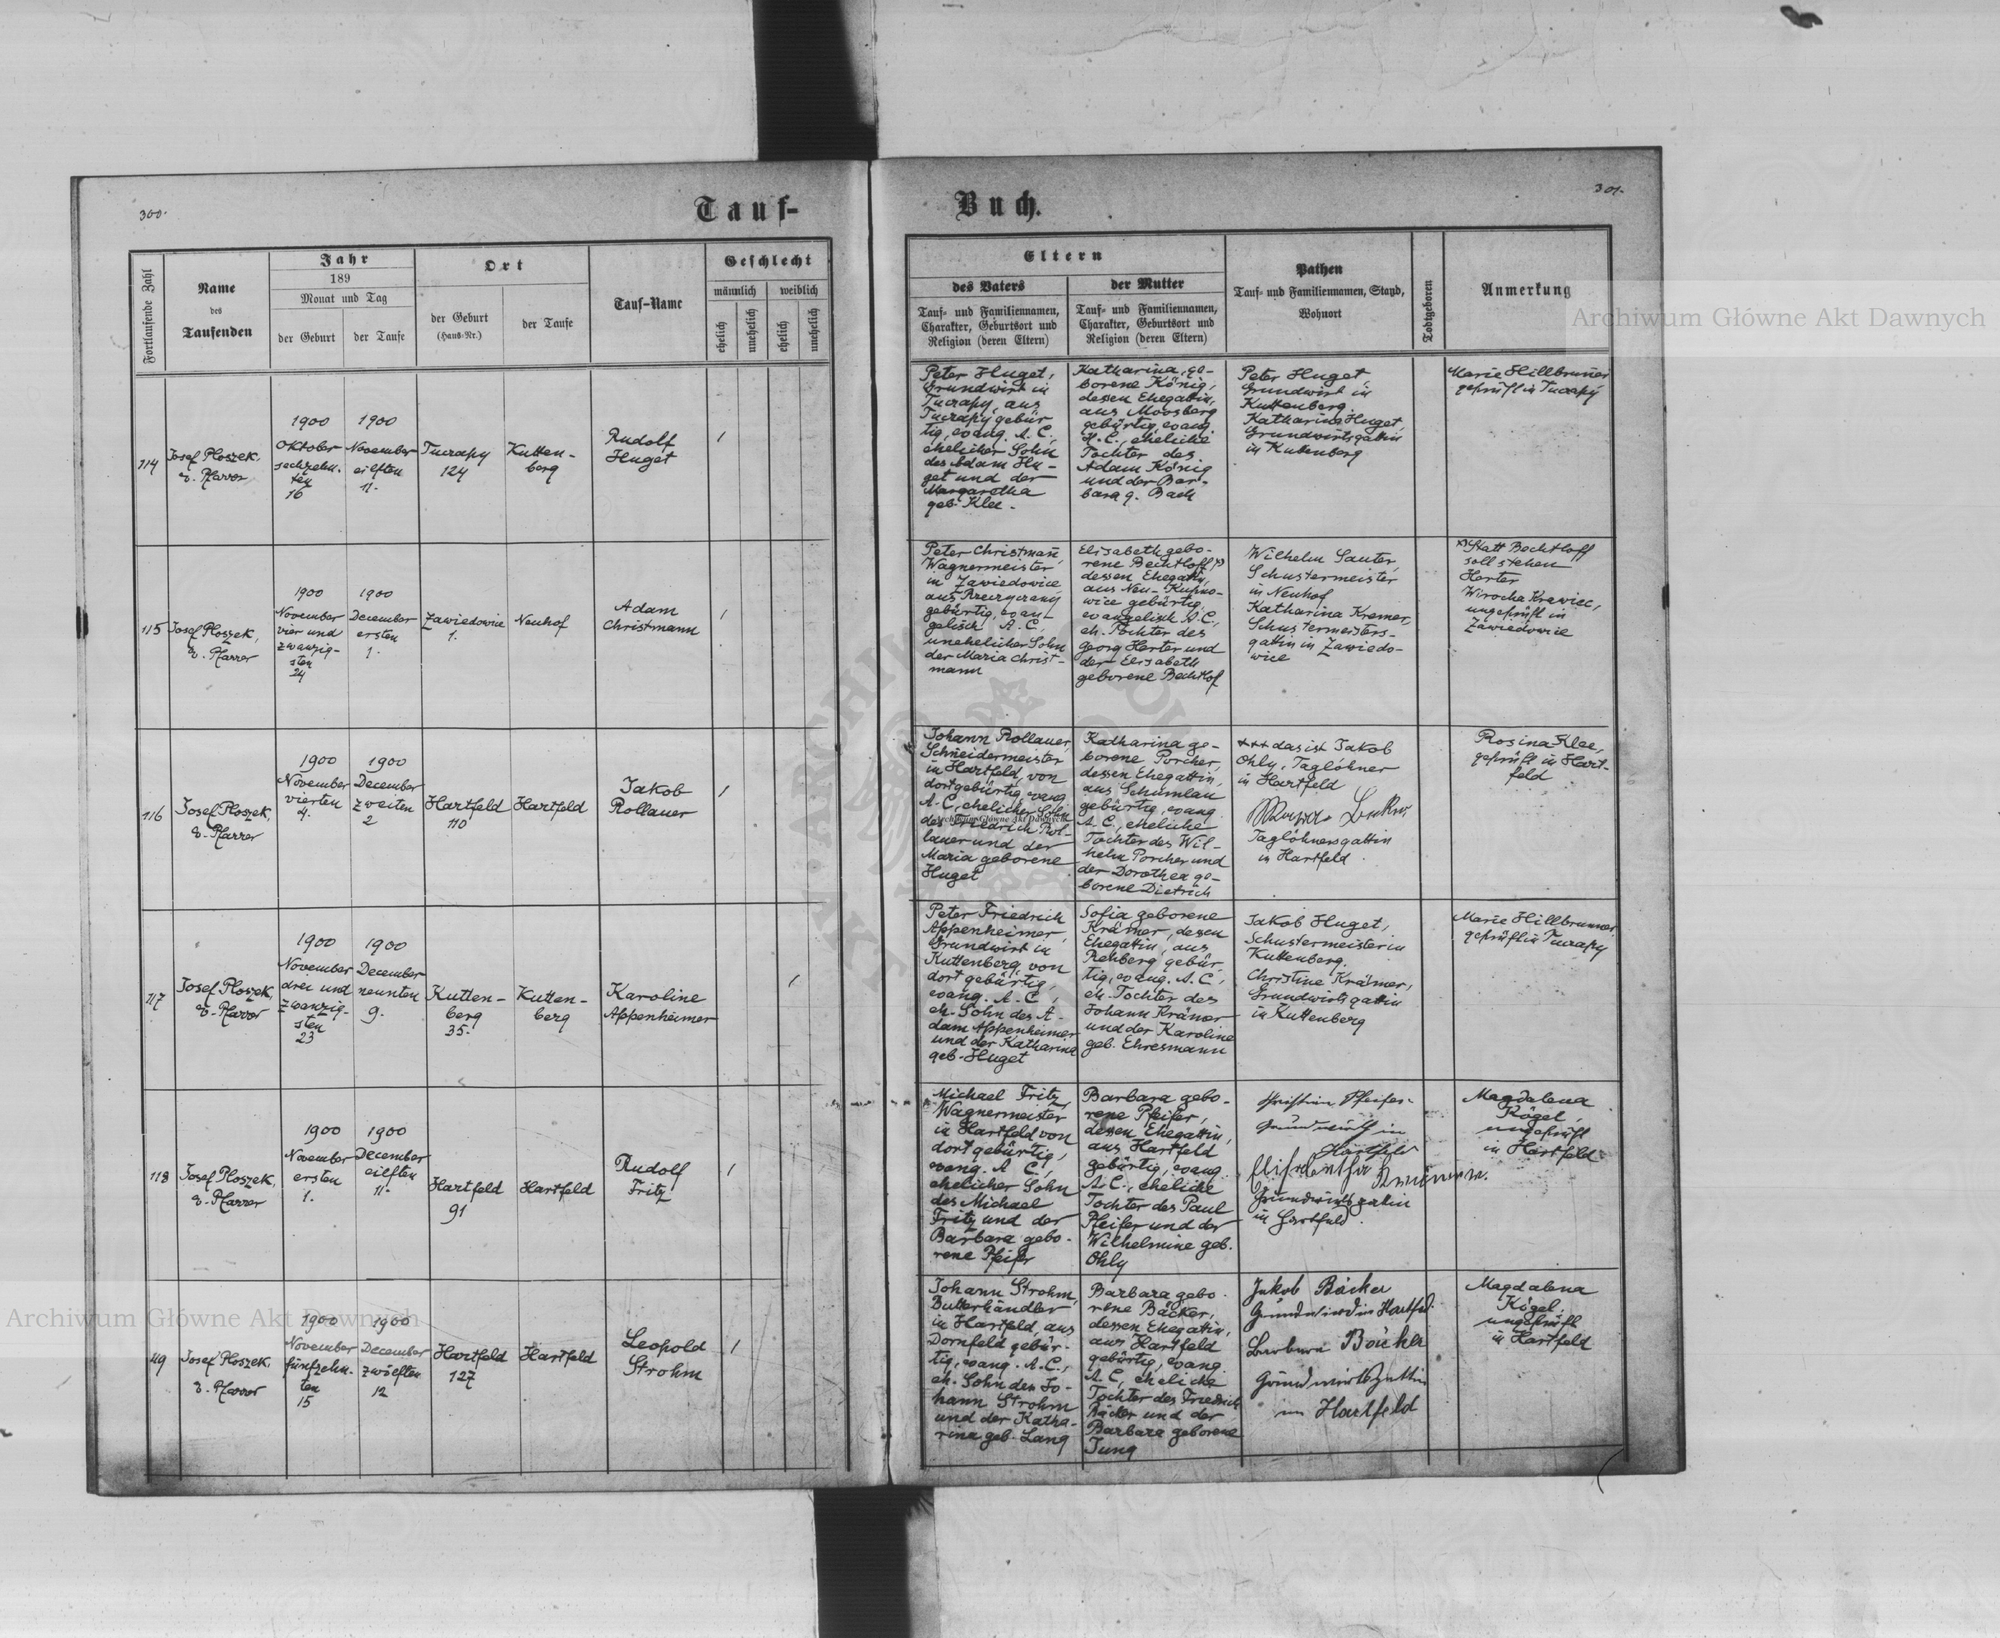 300.
Tauf-
Fortlaufende Zahl
Name
des
Taufenden
Jahr
189
Monat und Tag
der Geburt
der Taufe
Ort
der Geburt
(Haus-Nr.)
der Taufe
Tauf-Name
Geschlecht
männlich
weiblich
ehelich
unehelich
ehelich
unehelich
114
Josef Ploszek,
e. Pfarrer
1900
Oktober
sechzehn-
ten
16
1900
November
eilften
11.
Tucrapy
124
Kutten-
berg
Rudolf
Huget
1
115
Josef Ploszek,
e. Pfarrer
1900
November
vier und
zwanzig-
sten
24
1900
December
ersten
1.
Zawiedowice
1.
Neuhof
Adam
Christmann
1
116
Josef Ploszek,
e. Pfarrer
1900
November
vierten
4.
1900
December
zweiten
2
Hartfeld
110
Hartfeld
Jakob
Rollauer
1
117
Josef Ploszek,
e. Pfarrer
1900
November
drei und
zwanzig-
sten
23
1900
December
neunten
9.
Kutten-
berg
35.
Kutten-
berg
Karoline
Appenheimer
1
118
Josef Ploszek,
e. Pfarrer
1900
November
ersten
1.
1900
December
eilften
11.
Hartfeld
91
Hartfeld
Rudolf
Fritz
1
119
Josef Ploszek,
e. Pfarrer
1900
November
fünfzehn-
ten
15
1900
December
zwölften
12
Hartfeld
127
Hartfeld
Leopold
Strohm
1
301.
Buch.
Eltern
des Vaters
Tauf- und Familiennamen,
Charakter, Geburtsort und
Religion (deren Eltern)
der Mutter
Tauf- und Familiennamen,
Charakter, Geburtsort und
Religion (deren Eltern)
Pathen
Tauf- und Familiennamen, Stand,
Wohnort
Todtgeboren
Anmerkung
Peter Huget,
Grundwirt in
Tucrapy, aus
Tucrapy gebür
tig, evang. A. C.,
ehelicher Sohn
des Adam Hu-
get und der
Margaretha
geb. Klee.
Katharina, ge-
borene König,
dessen Ehegattin,
aus Moosberg
gebürtig, evang.
A. C., eheliche
Tochter des
Adam König
und der Bar-
bara g. Bach
Peter Huget
Grundwirt in
Kuttenberg.
Katharina Huget,
Grundwirtsgattin
in Kuttenberg
Marie Hillbrunner
geprüft in Tucrapy
Peter Christmañ
Wagnermeister
in Zawiedowice
aus
gebürtig, evan
gelisch A. C.,
unehelicher Sohn
der Maria Christ-
mann
Elisabeth gebo-
rene Bechtloff x)
dessen Ehegattin,
aus Neu-Kupno-
wice gebürtig,
evangelisch A. C.,
eh. Tochter des
Georg Harter und
der Elisabeth
geborene Bechtlof
Wilhelm Sauter,
Schustermeister
in Neuhof
Katharina Kremer,
Schustermeisters-
gattin in Zawiedo-
wice
x) Statt Bechtloff
soll stehen
Harter
Wirocha Krawiec,
ungeprüft in
Zawiedowie
Johann Rollauer,
Schneidermeister
in Hartfeld, von
dort gebürtig, evang.
A. C., ehelicher Sohn
des Friedrich Rol-
lauer und der
Maria geborene
Huget
Katharina ge-
borene Porcher,
dessen Ehegattin,
aus Schumlau
gebürtig, evang.
A. C., eheliche
Tochter des Wil-
helm Porcher und
der Dorothea ge-
borene Dietrich
+++ das ist Jakob
Ohly, Taglöhner
in Hartfeld
Taglöhnersgattin
in Hartfeld.
Rosina Klee,
geprüft in Hart-
feld
Peter Friedrich
Appenheimer,
Grundwirt in
Kuttenberg, von
dort gebürtig,
evang. A. C.,
eh. Sohn des A-
dam Appenheimer
und der Katharina
geb. Huget
Sofia geborene
Krämer, dessen
Ehegattin, aus
Rehberg gebür-
tig, evang. A. C.,
eh. Tochter des
Johann Krämer
und der Karoline
geb. Ehresmann
Jakob Huget,
Schustermeister in
Kuttenberg.
Christine Krämer,
Grundwirtsgattin
in Kuttenberg
Marie Hillbrunner
geprüft in Tucrapy
Michael Fritz,
Wagnermeister
in Hartfeld von
dort gebürtig,
evang. A. C.,
ehelicher Sohn
des Michael
Fritz und der
Barbara gebo-
rene Pfeifer
Barbara gebo-
rene Pfeifer,
dessen Ehegattin,
aus Hartfeld
gebürtig, evang.
A. C., eheliche
Tochter des Paul
Pfeifer und der
Wilhelmine geb.
Ohly
Christian Pfeifer
Grundwirth in
Hartfeld
Elisabetha
Grundwirthsgattin
in Hartfeld.
Magdalena
Kögel,
ungeprüft
in Hartfeld
Johann Strohm,
Butterhändler
in Hartfeld, aus
Dornfeld gebür-
tig, evang. A. C.,
eh. Sohn den Jo-
hann Strohm
und der Katha-
rina geb. Lang
Barbara gebo-
rene Bäcker,
dessen Ehegattin,
aus Hartfeld
gebürtig, evang.
A. C., eheliche
Tochter des Friedrich
Bäcker und der
Barbara geborene
Jung
Jakob Bäcker
Grundwird in Hartfed.
Barbara Bäcker
Grundwirtsgattin
in Hartfeld
Magdalena
Kögel.
ungeprüft
in Hartfeld
Archiwum Główne Akt Dawnych
Archiwum Główne Akt Dawnych
Archiwum Główne Akt Dawnych